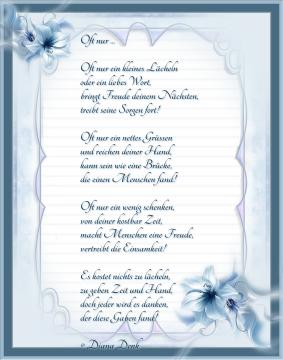 Oft nur ...
Oft nur ein kleines Lächeln
oder ein liebes Wort,
bringt Freude deinem Nächsten,
treibt seine Sorgen fort!
Oft nur ein nettes Grüssen
und reichen deiner Hand,
kann sein wie eine Brücke,
die einen Menschen fand!
Oft nur ein wenig schenken,
von deiner kostbar Zeit,
macht Menschen eine Freude,
vertreibt die Einsamkeit!
Es kostet nichts zu lächeln,
zu geben Zeit und Hand,
doch jeder wird es danken,
der diese Gaben fand!
© Diana Denk